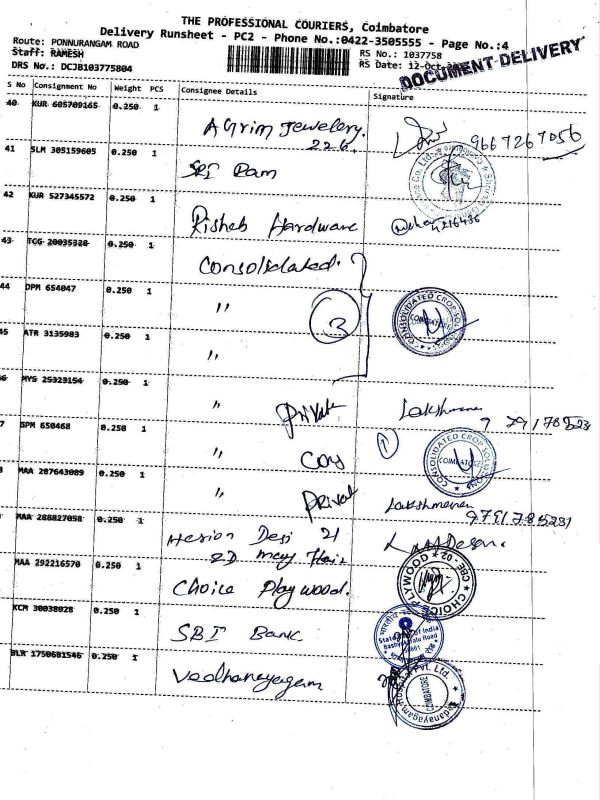 THE PROFESSIONAL COURIERS, Coimbatore
Delivery Runsheet - PC2 - Phone No.:0422-3505555 - Page No.:4
Route: PONNURANGAM ROAD
Staff: RAMESH
DRS No.: DCJB103775804
RS No.: 1037758
RS Date: 12-Oct
DOCUMENT DELIVERY
S No Consignment No Weight PCS Consignee Details Signature
40 KUR 605709165 0.250 1 Agrim Jewelery. 9667267056
226.
41 SLM 305159605 0.250 1 SRI Ram
42 KUR 527345572 0.250 1 Risheb Hardware
4216436
43 TCG 20035328 0.250 1 Consolidated.
44 DPM 654047 0.250 1 " 3
CONSOLIDATED CROP
COIMBATORE
45 ATR 3135983 0.250 1 "
MYS 25323154 0.250 1 " Private Lakshmana
SPM 650468 0.250 1 " Coy 1
CONSOLIDATED CROP SOLUTIONS
COIMBATORE
MAA 287643089 0.250 1 " Private Lakshmanan
9791785231
MAA 288827058 0.250 1 Desi 21
MAA 292216570 0.250 1 Choice Playwood.
CHOICE PLYWOOD CBE - 02
KCM 30038028 0.250 1 SBI Bank
State Bank of India
Road
BLR 1750681546 0.250 1 Vedhanayagam
Vedanayagam Hospital Pvt. Ltd.
COIMBATORE